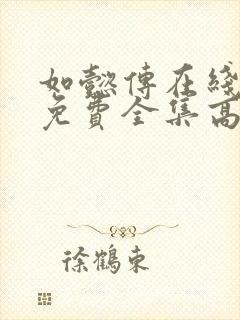 如懿傳在綫
免費全集高
徐鶴東